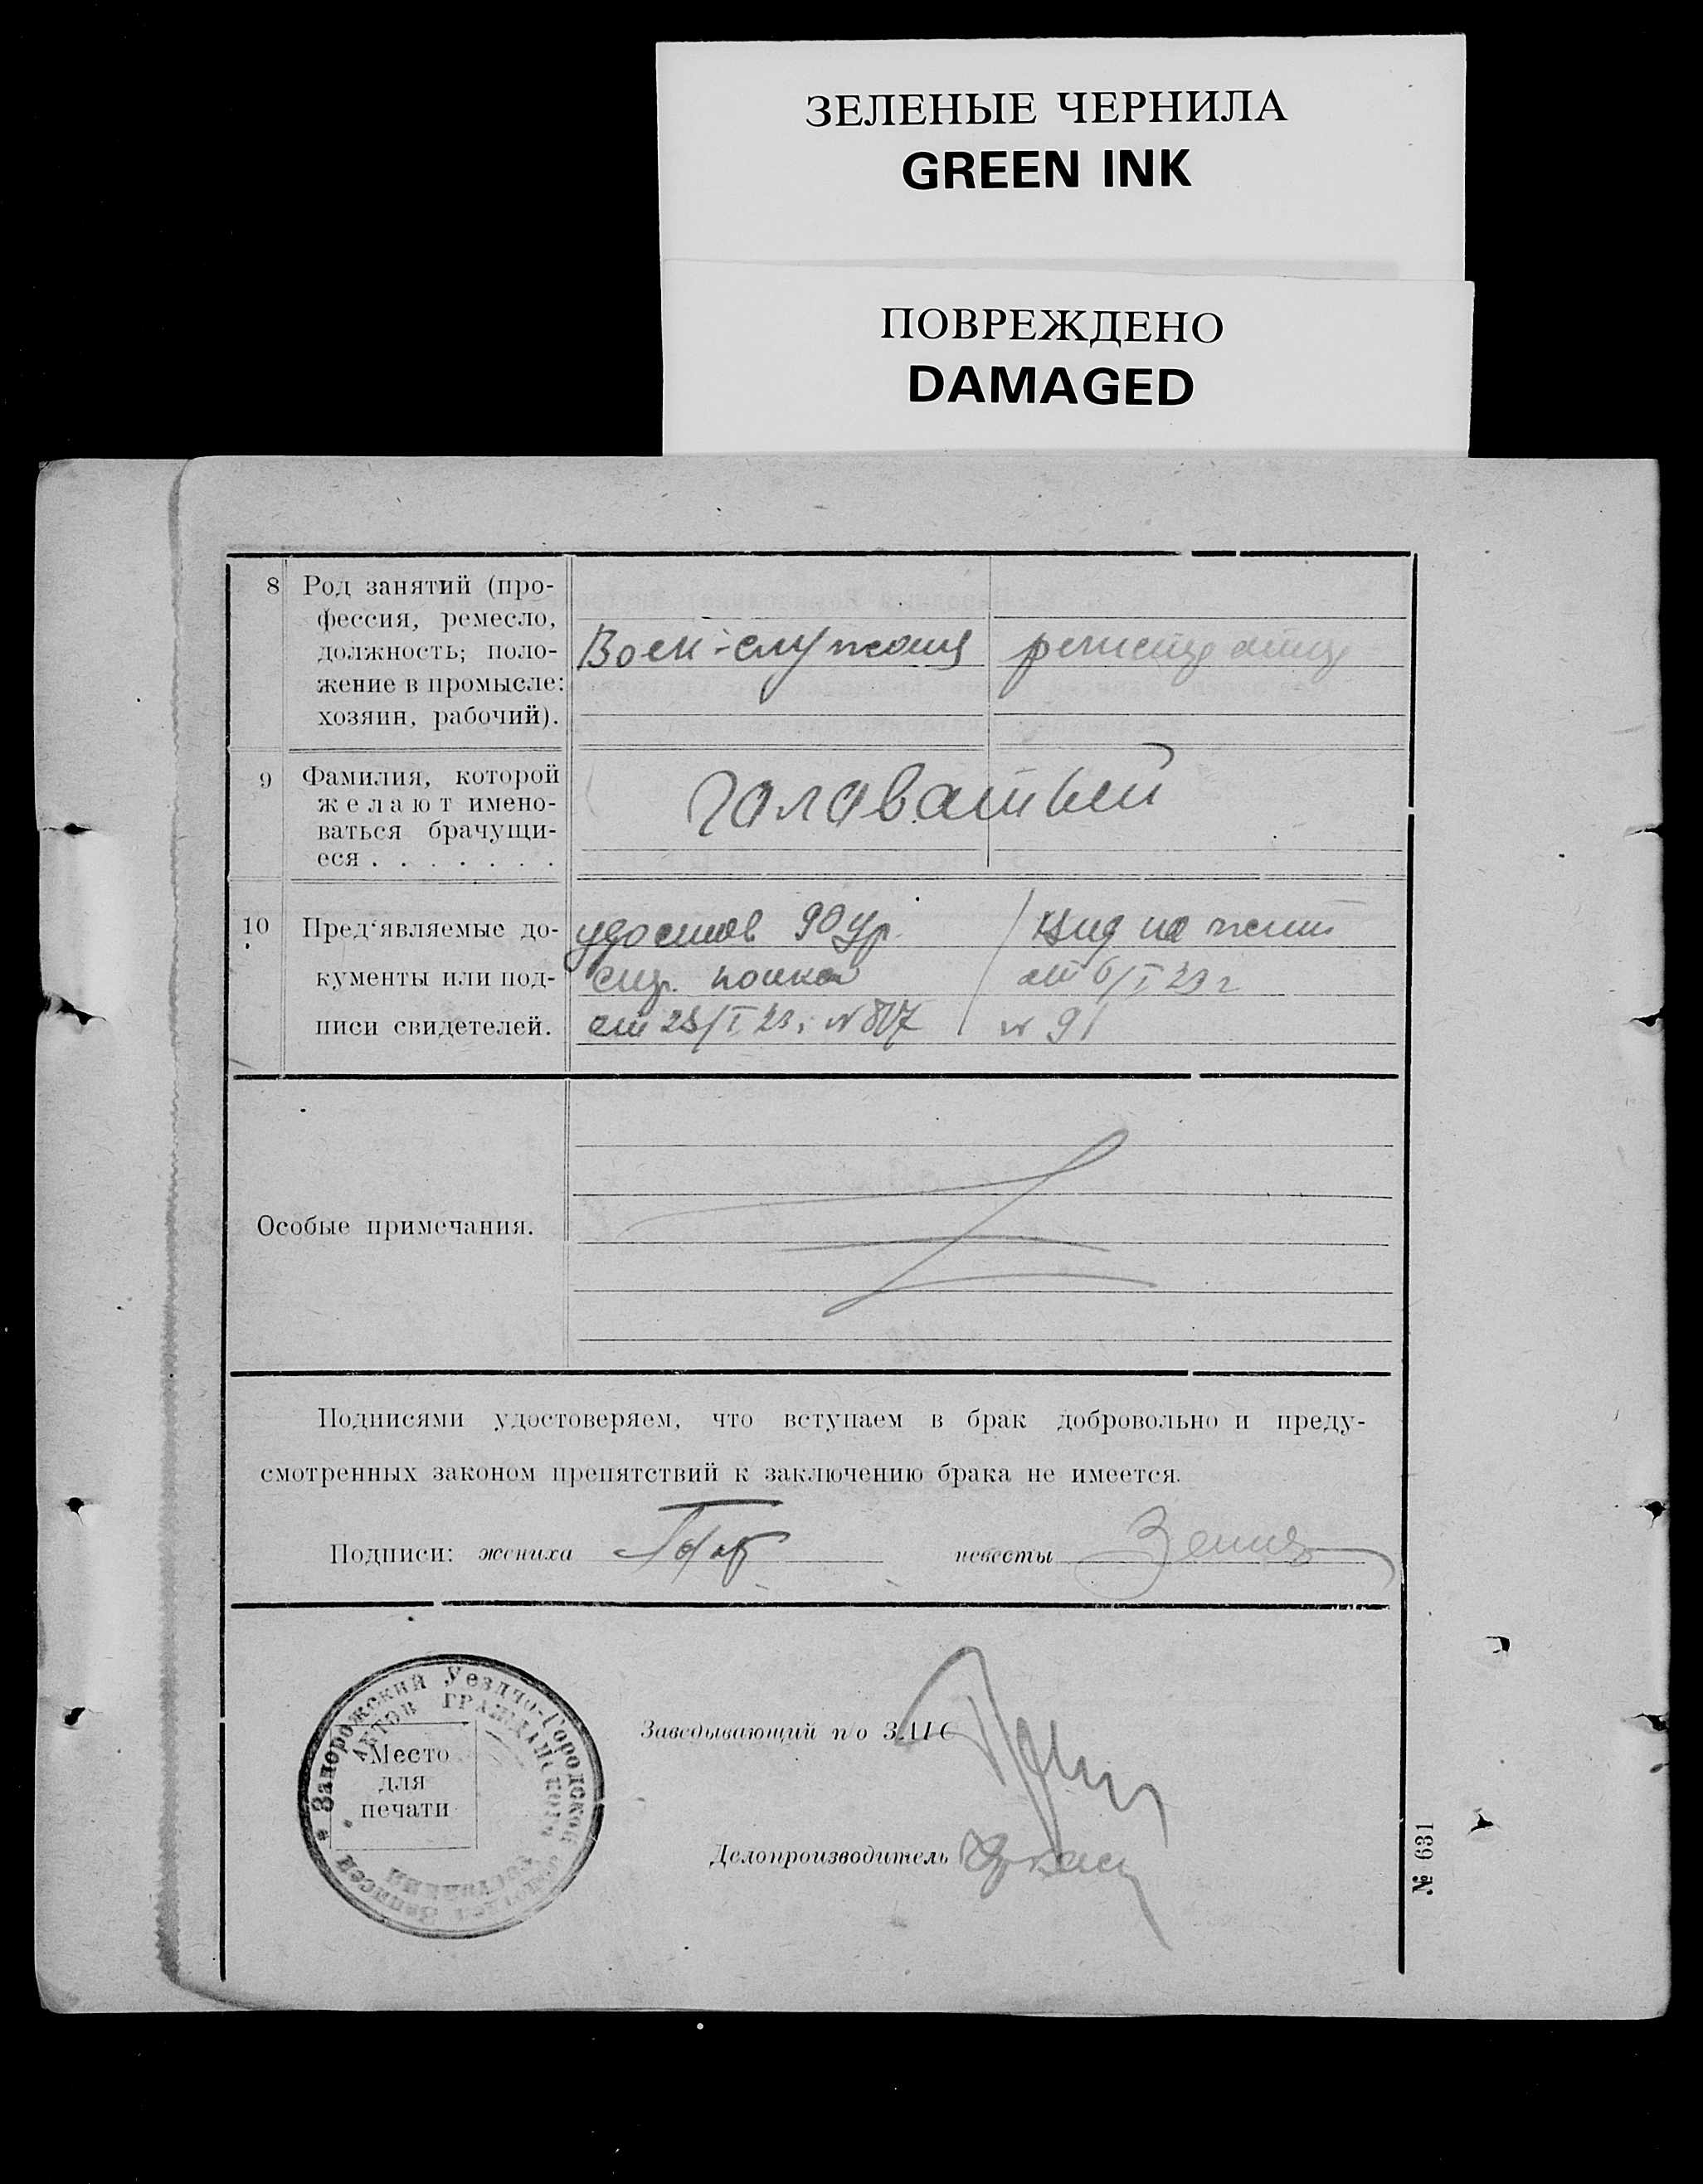 ЗЕЛЕНЫЕ ЧЕРНИЛА
GREEN INK
ПОВРЕЖДЕНО
DAMAGED
8 Род занятий (про-
фессия, ремесло,
должность; поло-
жение в промысле:
хозяин, рабочий).
Воен-служащ
9 Фамилия, которой
желают имено-
ваться брачущи-
еся . . . . . . .
Головатый
10 Пред‘являемые до-
кументы или под-
писи свидетелей.
удостов 90 Ур
стр. полка
от 23/I 23. N 807
Вид на жит
от 6/I 23 г
N 91
Особые примечания.
Подписями удостоверяем, что вступаем в брак добровольно и преду-
смотренных законом препятствий к заключению брака не имеется.
Подписи: жениха невесты
Запорожский Уездно-Городской Подотдел Записей
АКТОВ ГРАЖДАНСКОГО СОСТОЯНИЯ
Место
для
печати
Заведывающий п/о ЗАГС
Делопроизводитель
№ 631